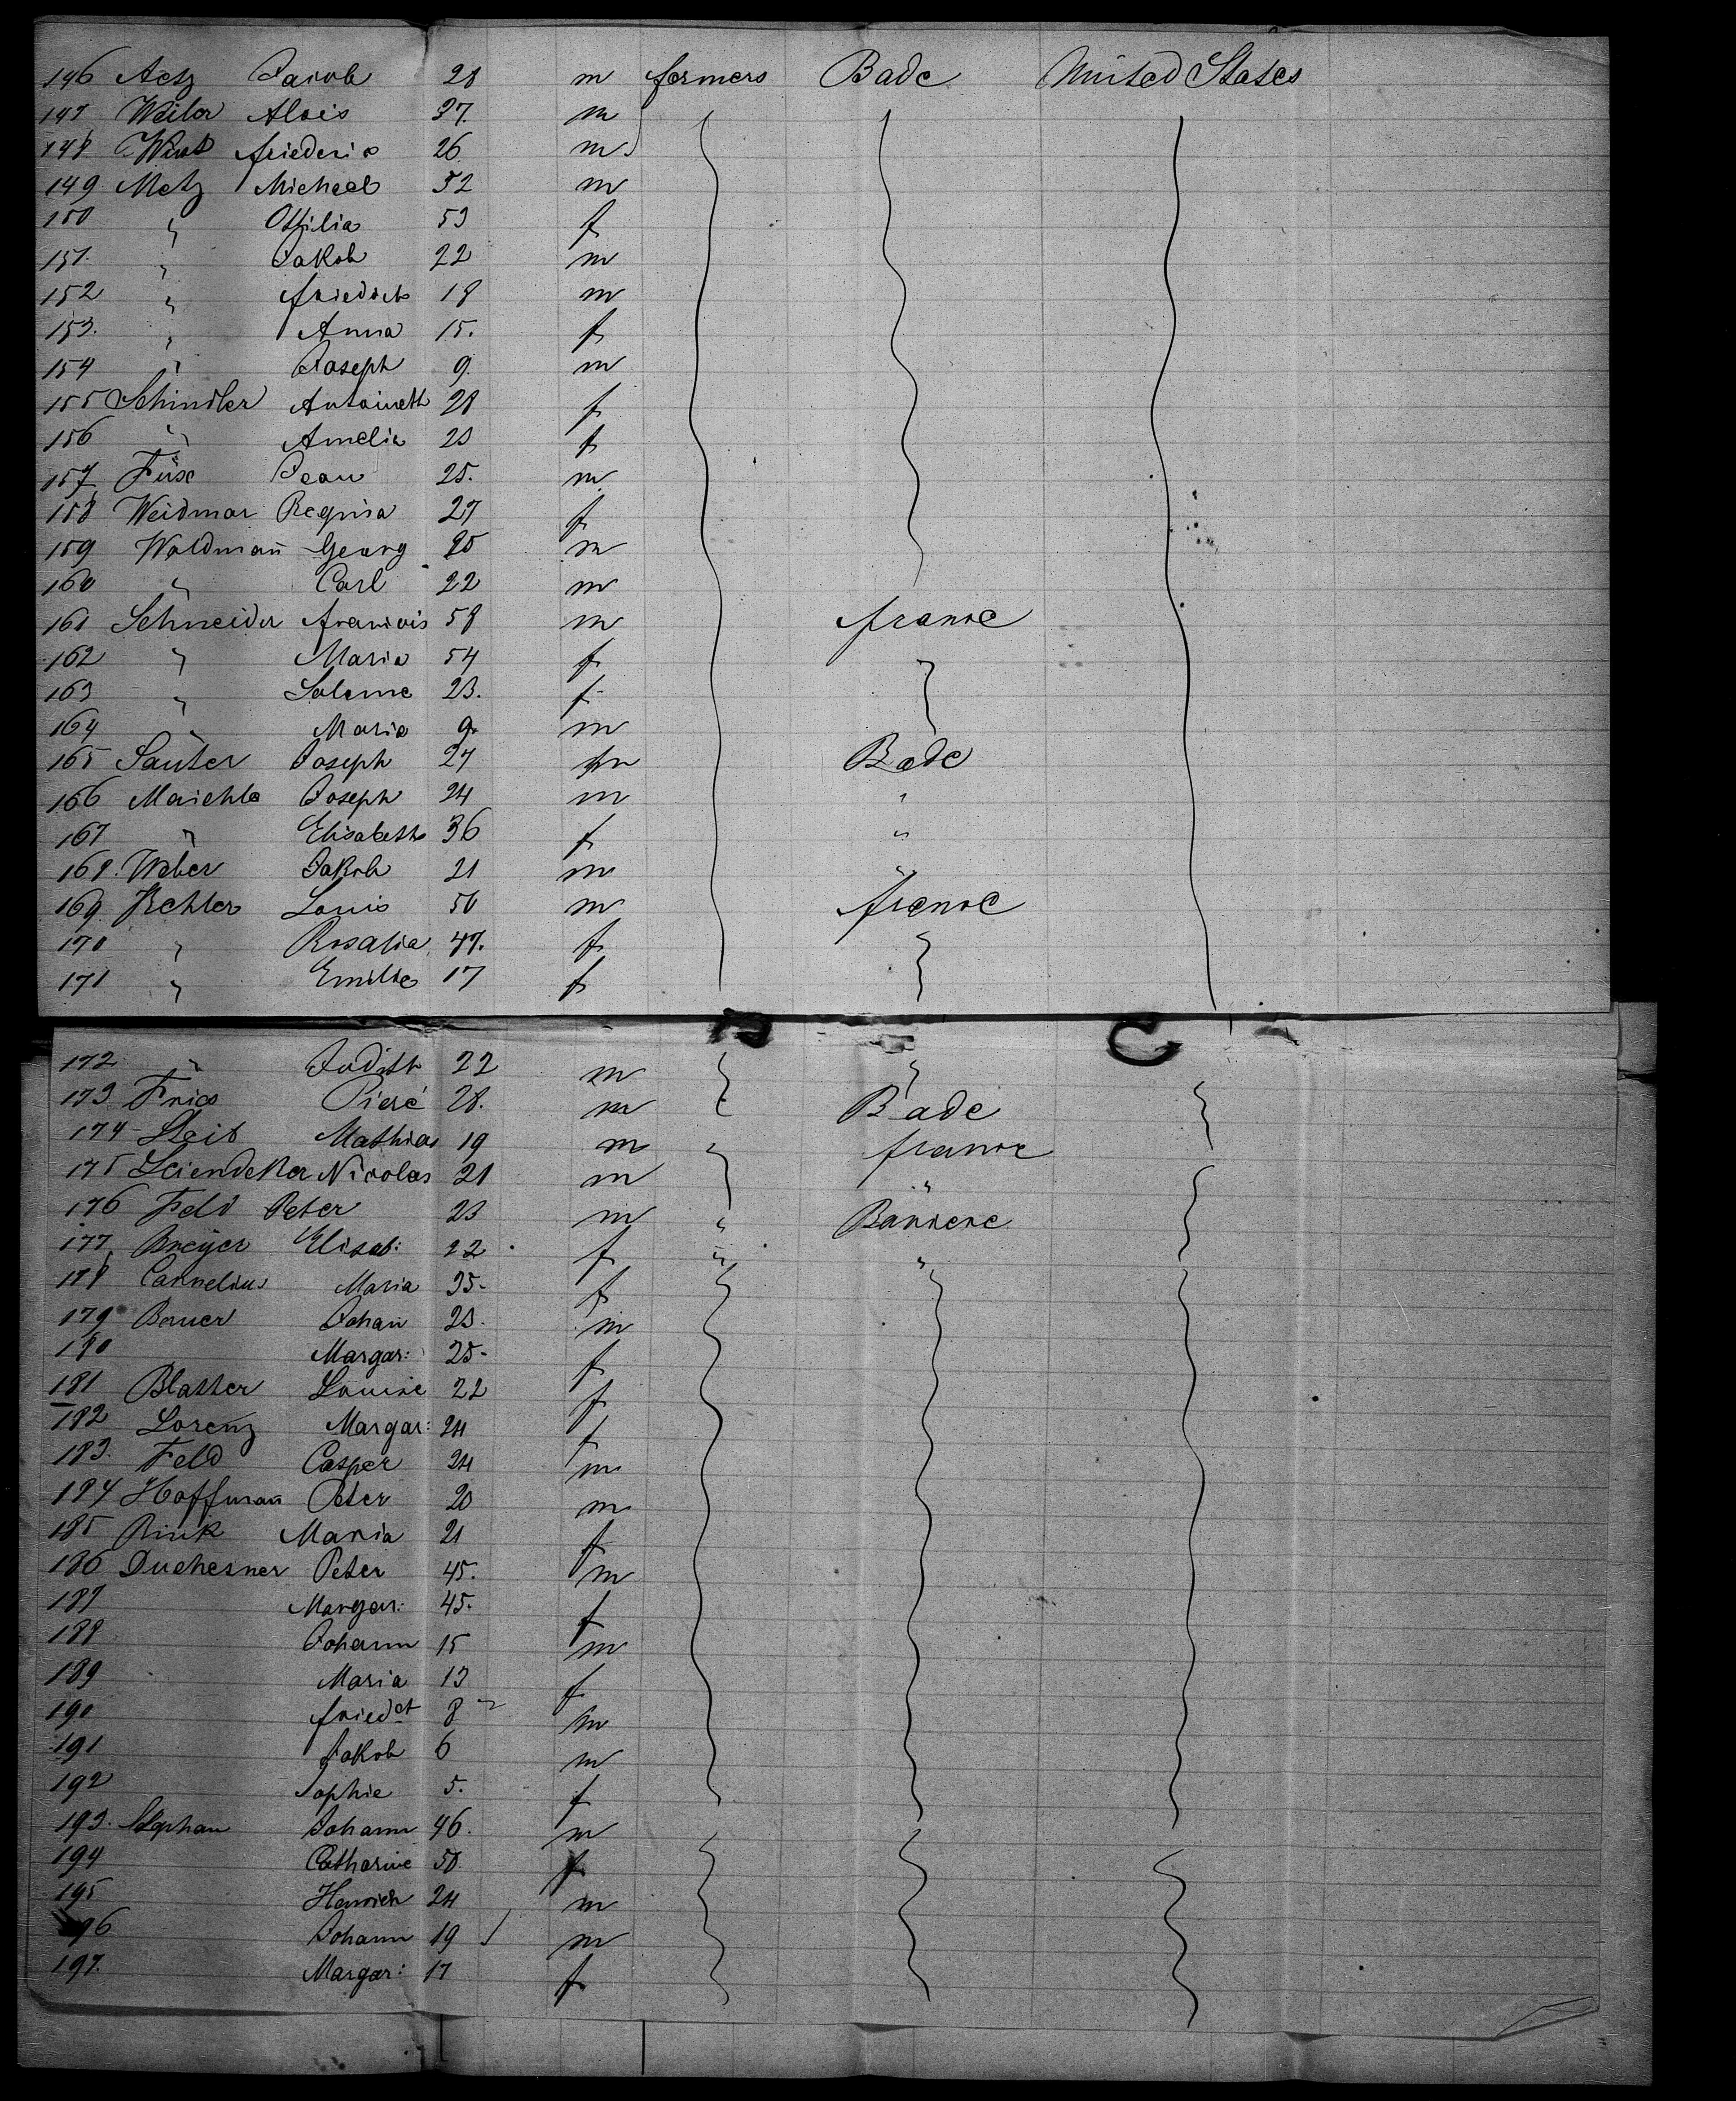 146 Aetz Jacob 28 m farmers Bade United States
147 Weiler Alois 37. m
148 Wirt Friederic 26 m
149 Metz Micheel 52 m
150 " Ottilia 53 f
151. " Jakob 22 m
152 " Friedrich 18 m
153. " Anna 15. f
154 " Joseph 9. m
155 Schindler Antoineth 28 f
156 " Amelia 23 f
157 Füse Jean 25. m
158 Weidmar Regina 27 f
159 Waldmañ Georg 25 m
160 " Carl 22 m
161 Schneider Francois 58 m France
162 " Maria 54 f
163 " Saleme 23. f
164 " Maria 9. m
165 Sauter Joseph 27 m Bade
166 Maichle Joseph 24 m "
167 " Elisabeth 36 f "
168. Weber Jakob 21 m "
169. Kehler Louis 50 m France
170 " Rosalia 47. f
171 " Emilie 17 f
172 " Judith 22 m
173 Frics Pieré 28. m Bade
174 Steib Mathias 19 m " France
175 Leiendeker Nicolas 21 m "
176 Feld Peter 23 m " Baviere
177 Breyer Elisab: 22 f " "
178 Cornelius Maria 35. f
179 Bauer Johañ 23. m
180 Margar: 25. f
181 Blatter Louise 22 f
182 Lorenz Margar: 24 f
183. Feld Casper 24 m
184 Hoffmañ Peter 20 m
185 Rink Maria 21 f
186 Duchesner Peter 45. m
187 Margar: 45. f
188 Johann 15 m
189 Maria 13 f
190 Friedch 8 m
191 Jakob 6 m
192 Sophie 5. f
193. Stephan Johann 46. m
194 Catharine 50. f
195 Henrich 24 m
196 Johann 19 m
197. Margar: 17 f